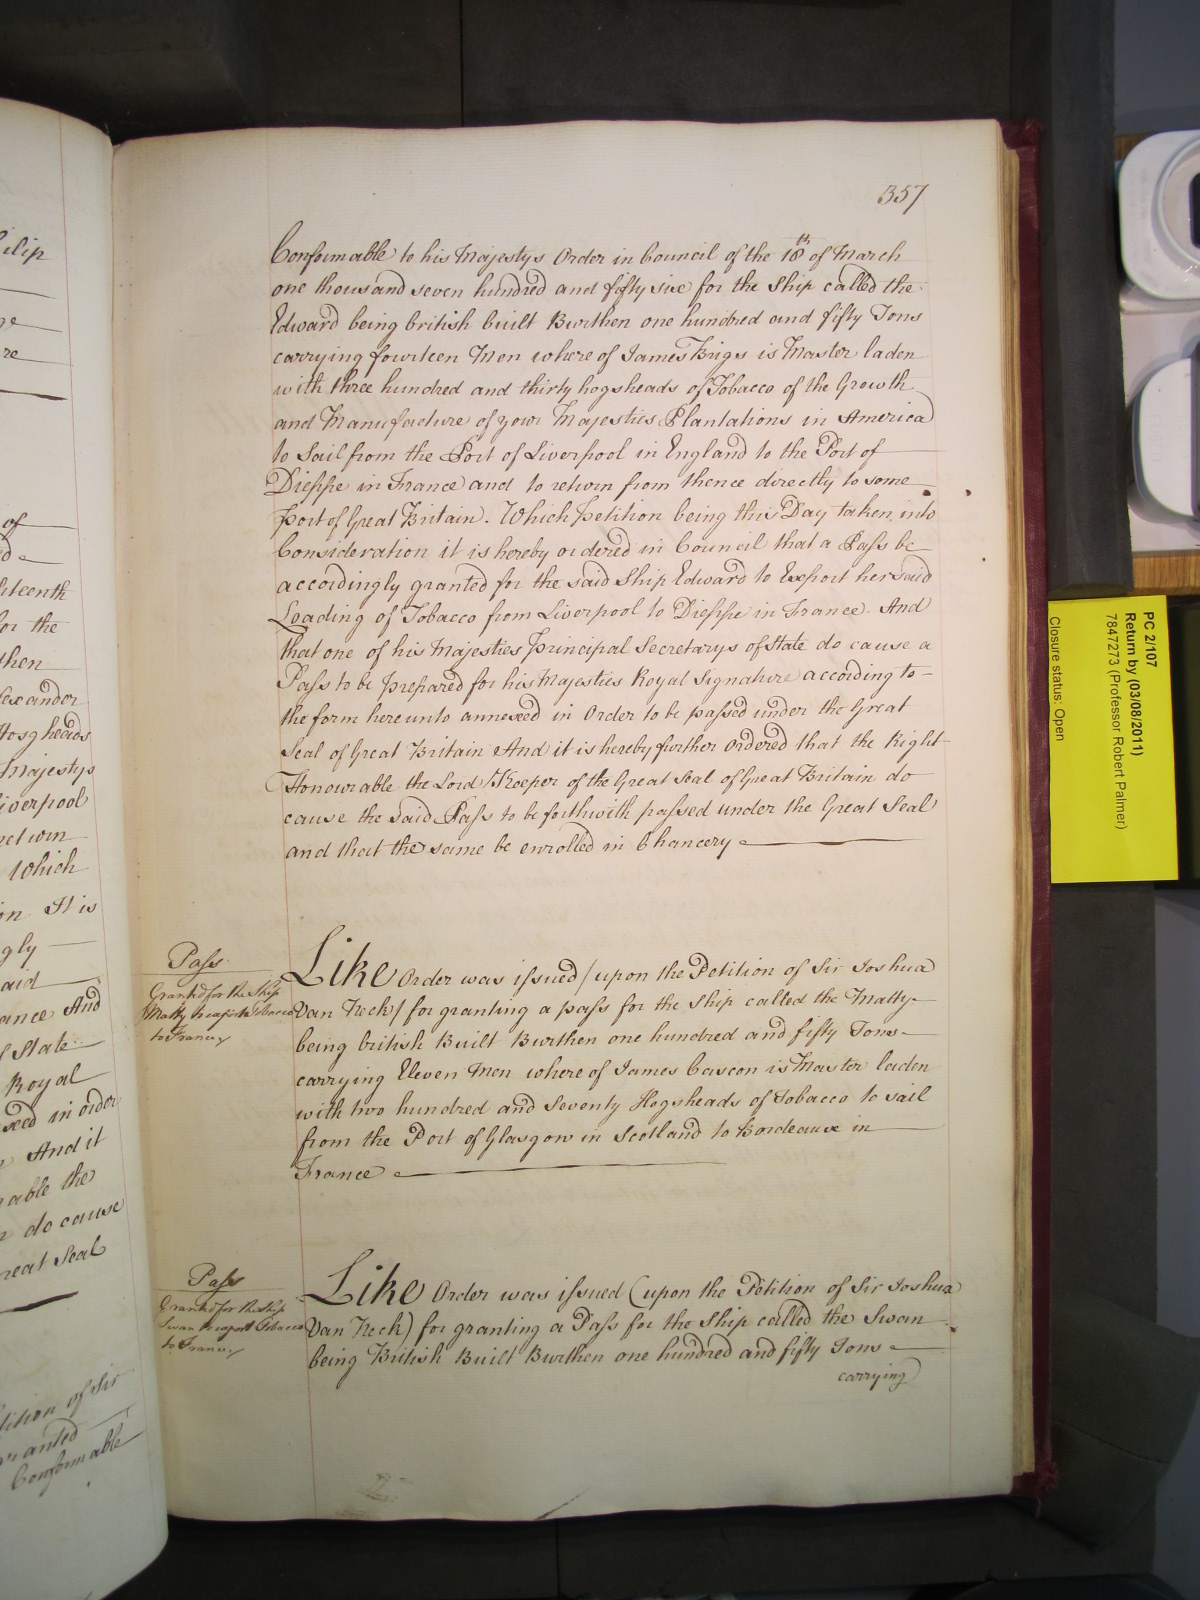 357
Conformable to his Majestys Order in Council of the 18th of March
one thousand seven hundred and fifty six for the Ship called the
Edward being british built Burthen one hundred and fifty Tons
carrying fourteen Men where of James Brigs is Master laden
with three hundred and thirty hogsheads of Tobacco of the Growth
and Manufacture of your Majesties Plantations in America
to Sail from the Port of Liverpool in England to the Port of
Dieppe in France and to return from thence directly to some
port of Great Britain. Which Petition being this Day taken into
Consideration it is hereby ordered in Council that a Pass be
accordingly granted for the said Ship Edward to Export her said
Loading of Tobacco from Liverpool to Dieppe in France. And
that one of his Majesties Principal Secretarys of State do cause a
Pass to be prepared for his Majesties Royal Signature according to
the form hereunto annexed in Order to be passed under the Great
Seal of Great Britain And it is hereby further Ordered that the Right
Honourable the Lord Keeper of the Great Seal of Great Britain do
cause the said Pass to be forthwith passed under the Great Seal
and that the same be enrolled in Chancery
Pass
Granted for the Ship
Matty to export Tobacco
to France
Like Order was issued / upon the Petition of Sir Joshua
Van Neck / for granting a pass for the Ship called the Matty
being british Built Burthen one hundred and fifty Tons
carrying Eleven Men where of James Cascon is Master laden
with two hundred and seventy Hogsheads of Tobacco to sail
from the Port of Glasgow in Scotland to Bordeaux in
France
Pass
Granted for the Ship
Swan to export Tobacco
to France
Like Order was issued (upon the Petition of Sir Joshua
Van Neck) for granting a Pass for the Ship called the Swan
being British Built Burthen one hundred and fifty Tons
carrying
of
for the
Hogsheads
Majestys
Liverpool
return
Which
It is
And
State
Royal
in order
And it
the
do cause
Great Seal
Petition of Sir
granted
Conformable
PC 2/107
Return by (03/08/2011)
7847273 (Professor Robert Palmer)
Closure status: Open